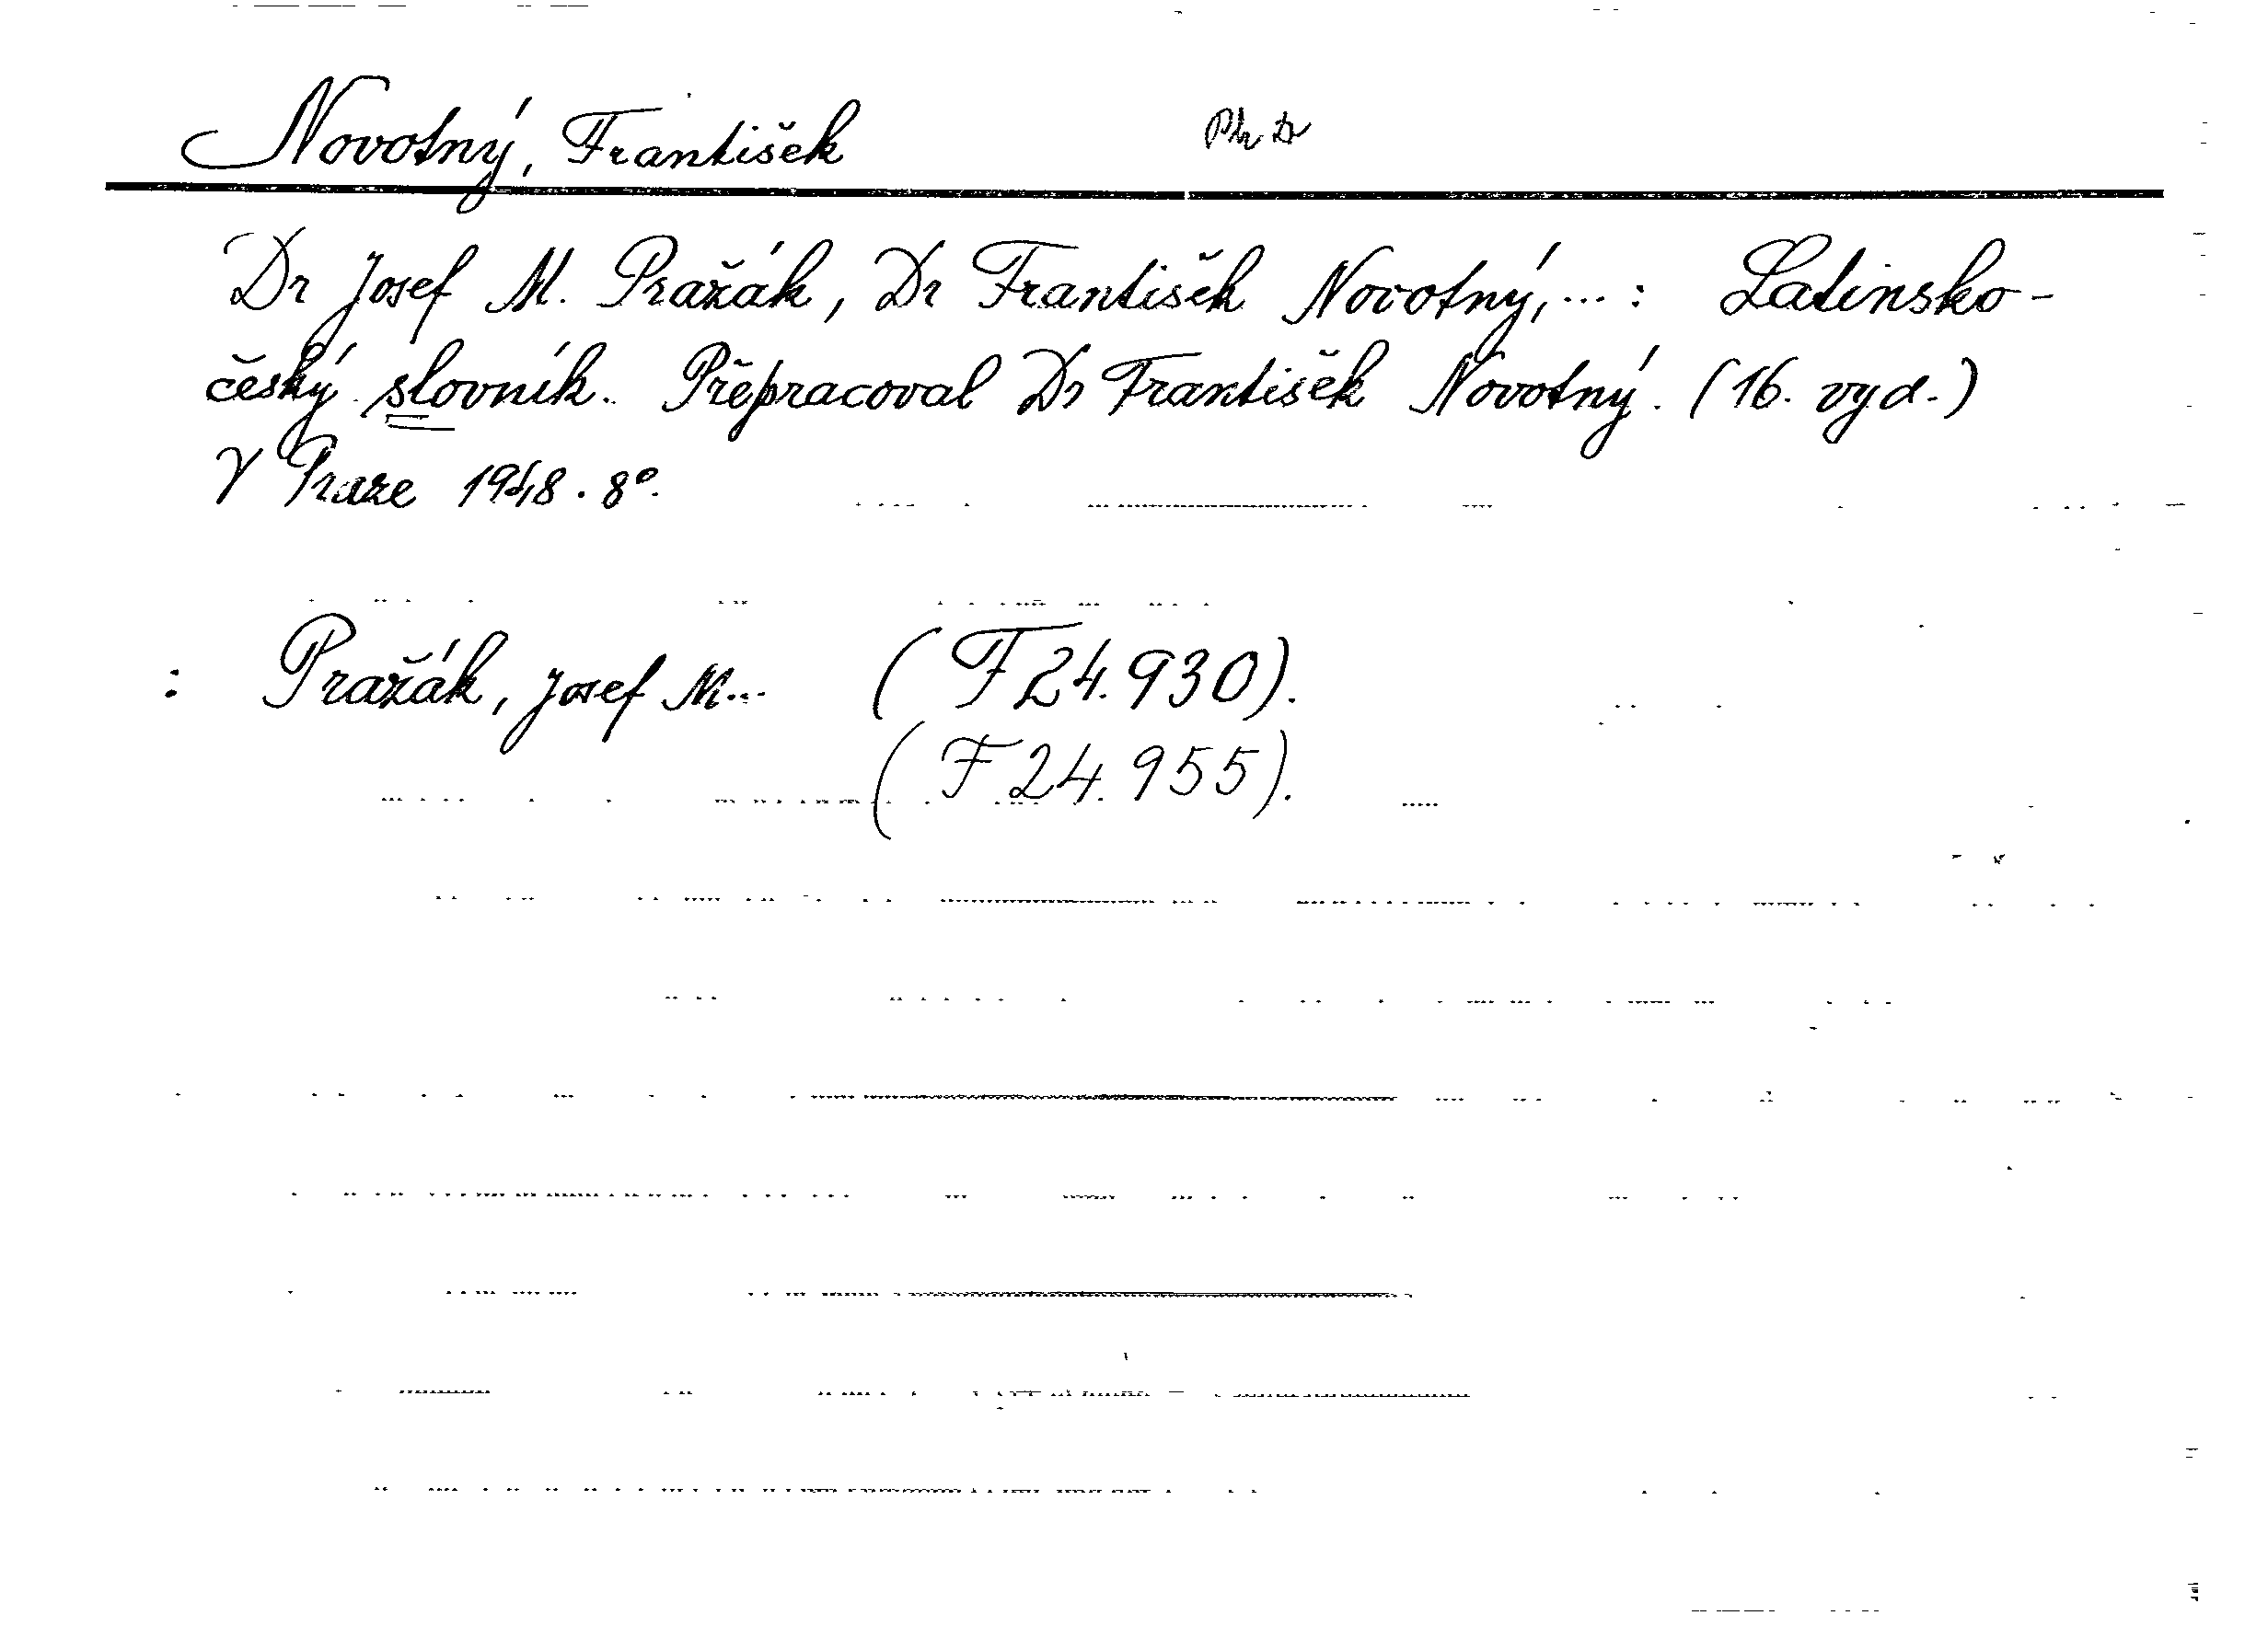 Novotný, František PhDr
Dr Josef M. Pražák, Dr František Novotný, ... : Latinsko-
český slovník. Přepracoval Dr František Novotný. (16. vyd.)
V Praze 1948. 8°.
: Pražák, Josef M... (F 24.930).
(F 24.955).